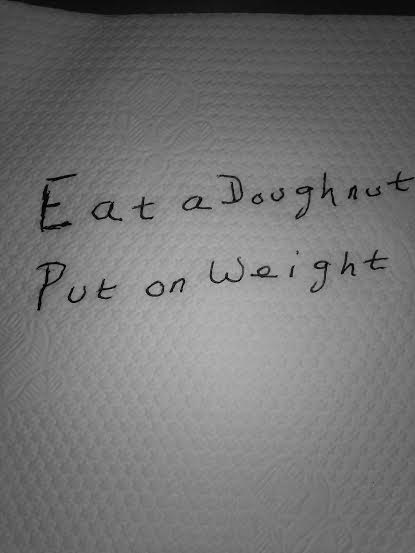 Eat a Doughnut
Put on Weight